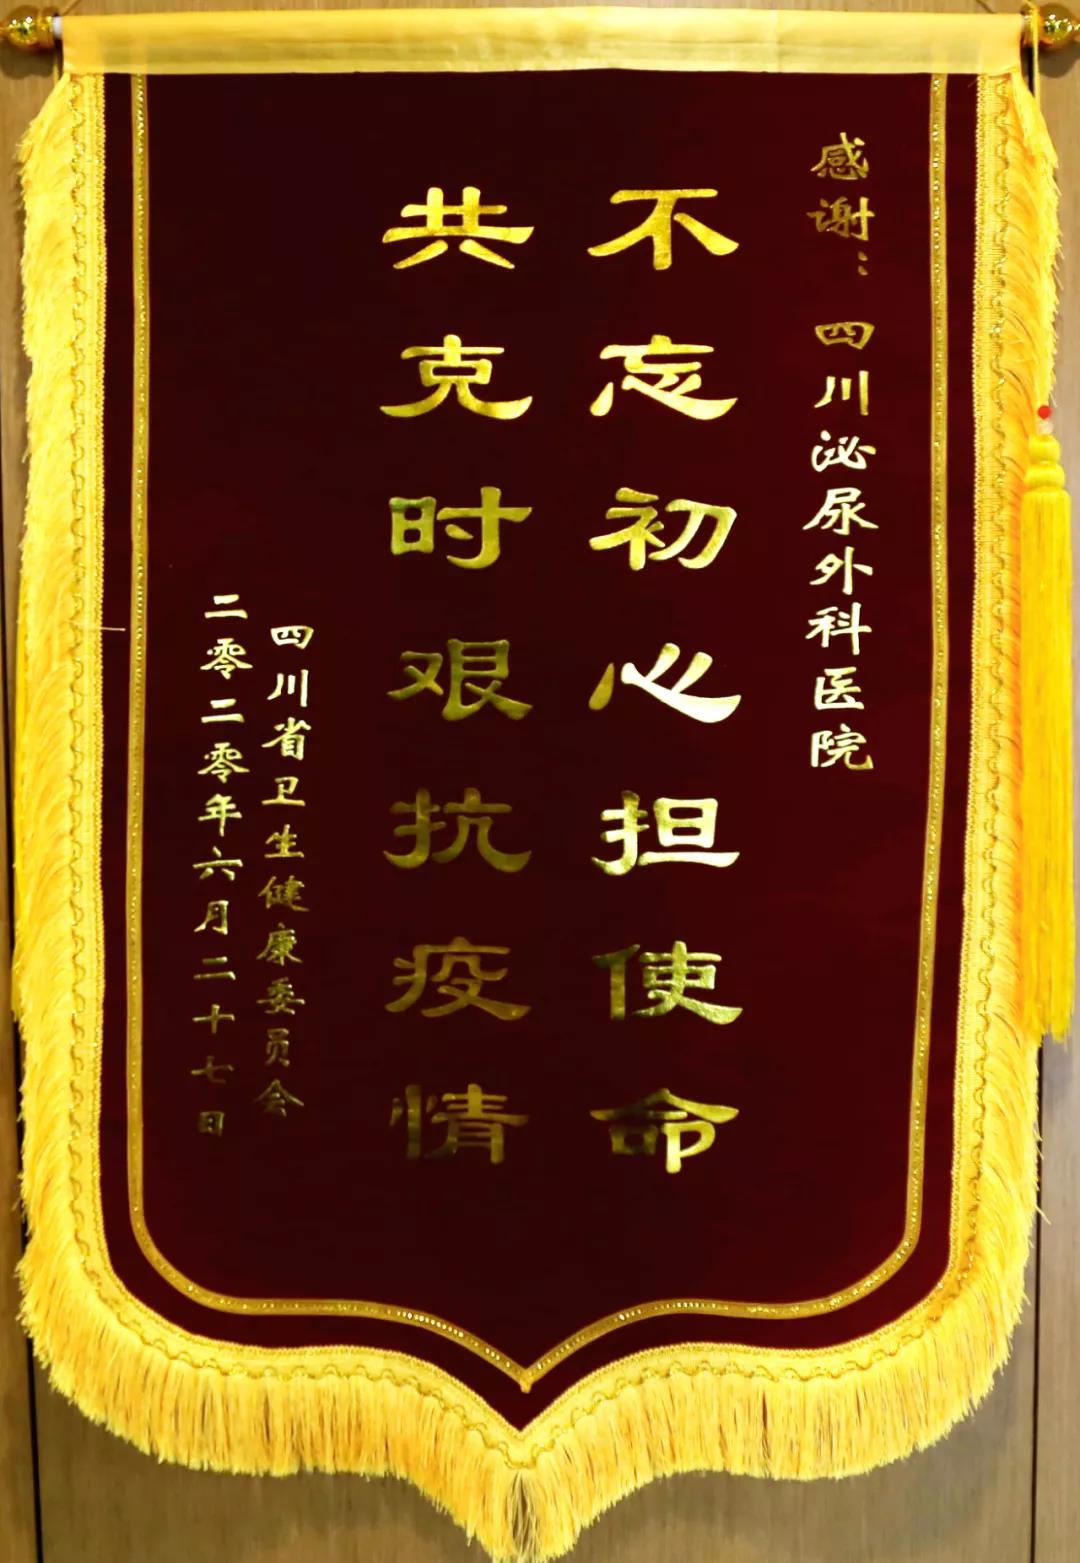 感谢：四川泌尿外科医院
不忘初心担使命
共克时艰抗疫情
四川省卫生健康委员会
二零二零年六月二十七日